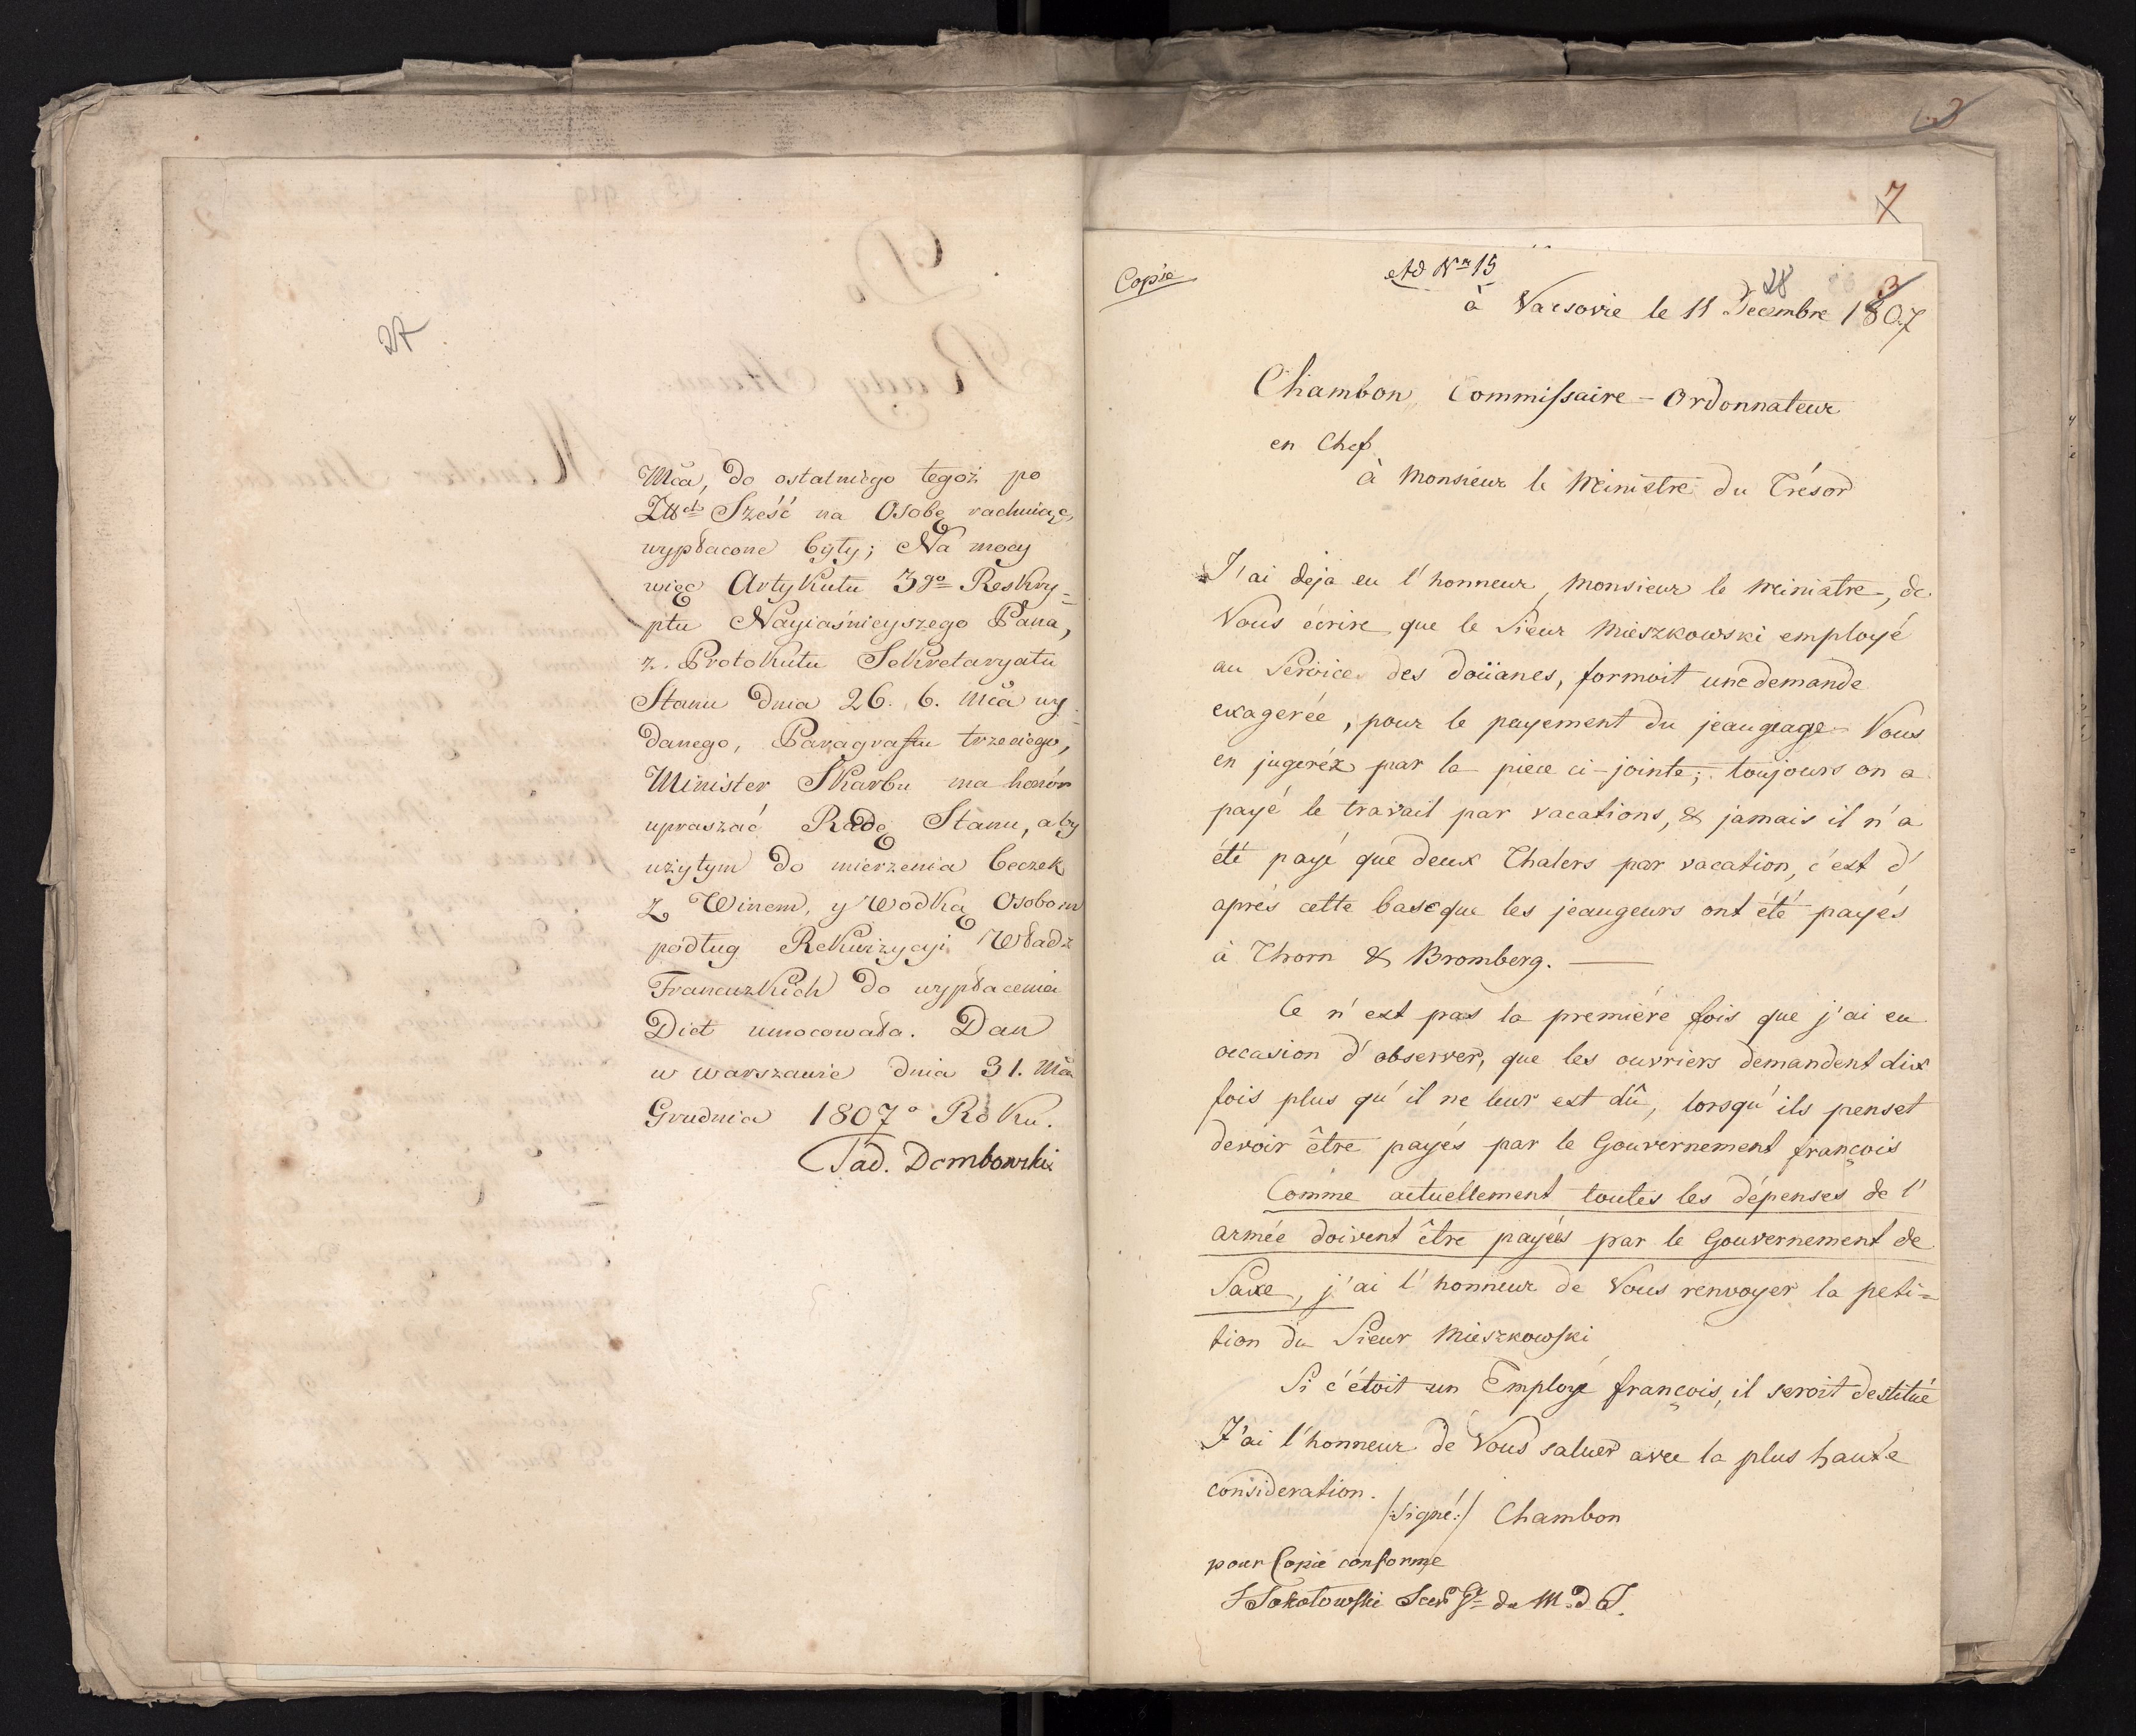 27
Mca, do ostatniego tegoż po
Sześć na Osobę rachuiąc,
wypłacone były; Na mocy
więc Artykułu 3go Reskry=
ptu Nayiaśnieyszego Pana,
z. Protokułu Sekretaryatu
Stanu dnia 26. b. Mca wy
danego, Paragrafu trzeciego,
Minister Skarbu ma honór
upraszać Radę Stanu, aby
użytym do mierzenia beczek
z Winem, y Wodką Osobom
podług Rekwizycyi Władz
Francuzkich do wypłacenia
Diet umocowała. Dan
w Warszawie dnia 31. Mca
Grudnia 1807o Roku.
Tad. Dembowski
7
Copie
Ad Nro 15
28
3
à Varsovie le 11 Decembre 1807
Chambon Commissaire-Ordonnateur
en Chef
à Monsieur le Ministre du Trésor
J'ai deja eu l'honneur, Monsieur le Ministre, de
Vous écrire que le Sieur Mieszkowski employé
au Service des doüanes, formoit une demande
exagerée, pour le payement du jeaugeage Vous
en jugeréz par la piece ci-jointe; toujours on a
payé le travail par vacations, & jamais il n'a
été payé que deux Thalers par vacation, c'est d'
aprés cette base que les jeaugeurs ont été payés
à Thorn & Bromberg.
Ce n'est pas la premiére fois que j'ai eu
occasion d'observer, que les ouvriers demandent dix
fois plus qu'il ne leur est dû, lorsqu'ils penset
devoir être payés par le Gouvernement françois
Comme actuellement toutes les dépenses de l'
armée doivent être payées par le Gouvernement de
Saxe, j'ai l'honneur de Vous renvoyer la peti=
tion du Sieur Mieszkowski
Si c'étoit un Employé françois, il seroit destitué
J'ai l'honneur de Vous saluer avec la plus haute
consideration.
/:Signé:/ Chambon
pour Copie conforme
Sokołowski Secr Gl du M. d T.